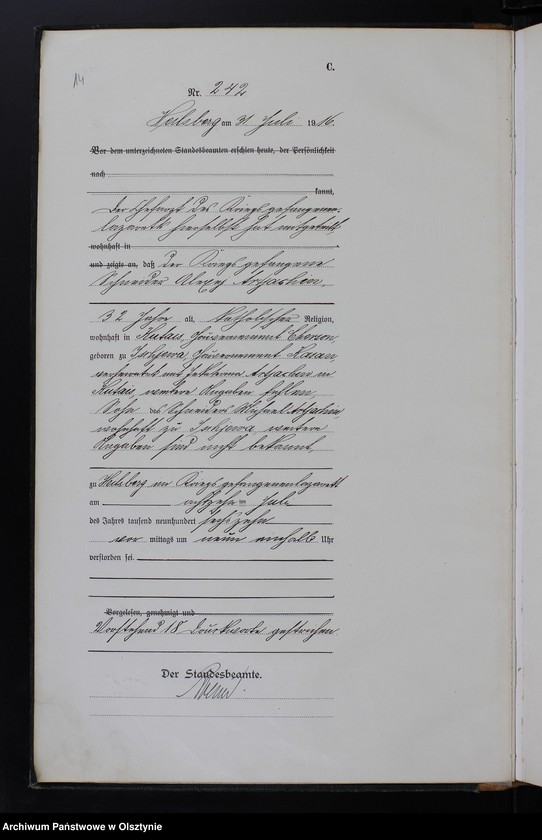 14
C.
Nr. 242
Heilsberg am 31 Juli 1916.
Vor dem unterzeichneten Standesbeamten erschien heute, der Persönlichkeit
nach
kannt,
Der Chefarzt des Kriegsgefangenen-
lazaretts hierselbst hat mitgeteilt
wohnhaft in
und zeigte an, daß der Kriegsgefangene
Schneider Alexej
32 Jahre alt, katholischer Religion,
wohnhaft in Kutais, Gouvernement Cherson,
geboren zu Gouvernement Kasan
verheiratet mit in
Kutais, weitere Angaben fehlen,
Sohn des Schneiders Michael
wohnhaft zu weitere
Angaben sind nicht bekannt,
zu Heilsberg im Kriegsgefangenenlazarett
am achtzehn ten Juli
des Jahres tausend neunhundert sechszehn
vor mittags um neun einhalb Uhr
verstorben sei.
Vorgelesen, genehmigt und
Vorstehend 18 Druckworte gestrichen.
Der Standesbeamte.
Archiwum Państwowe w Olsztynie